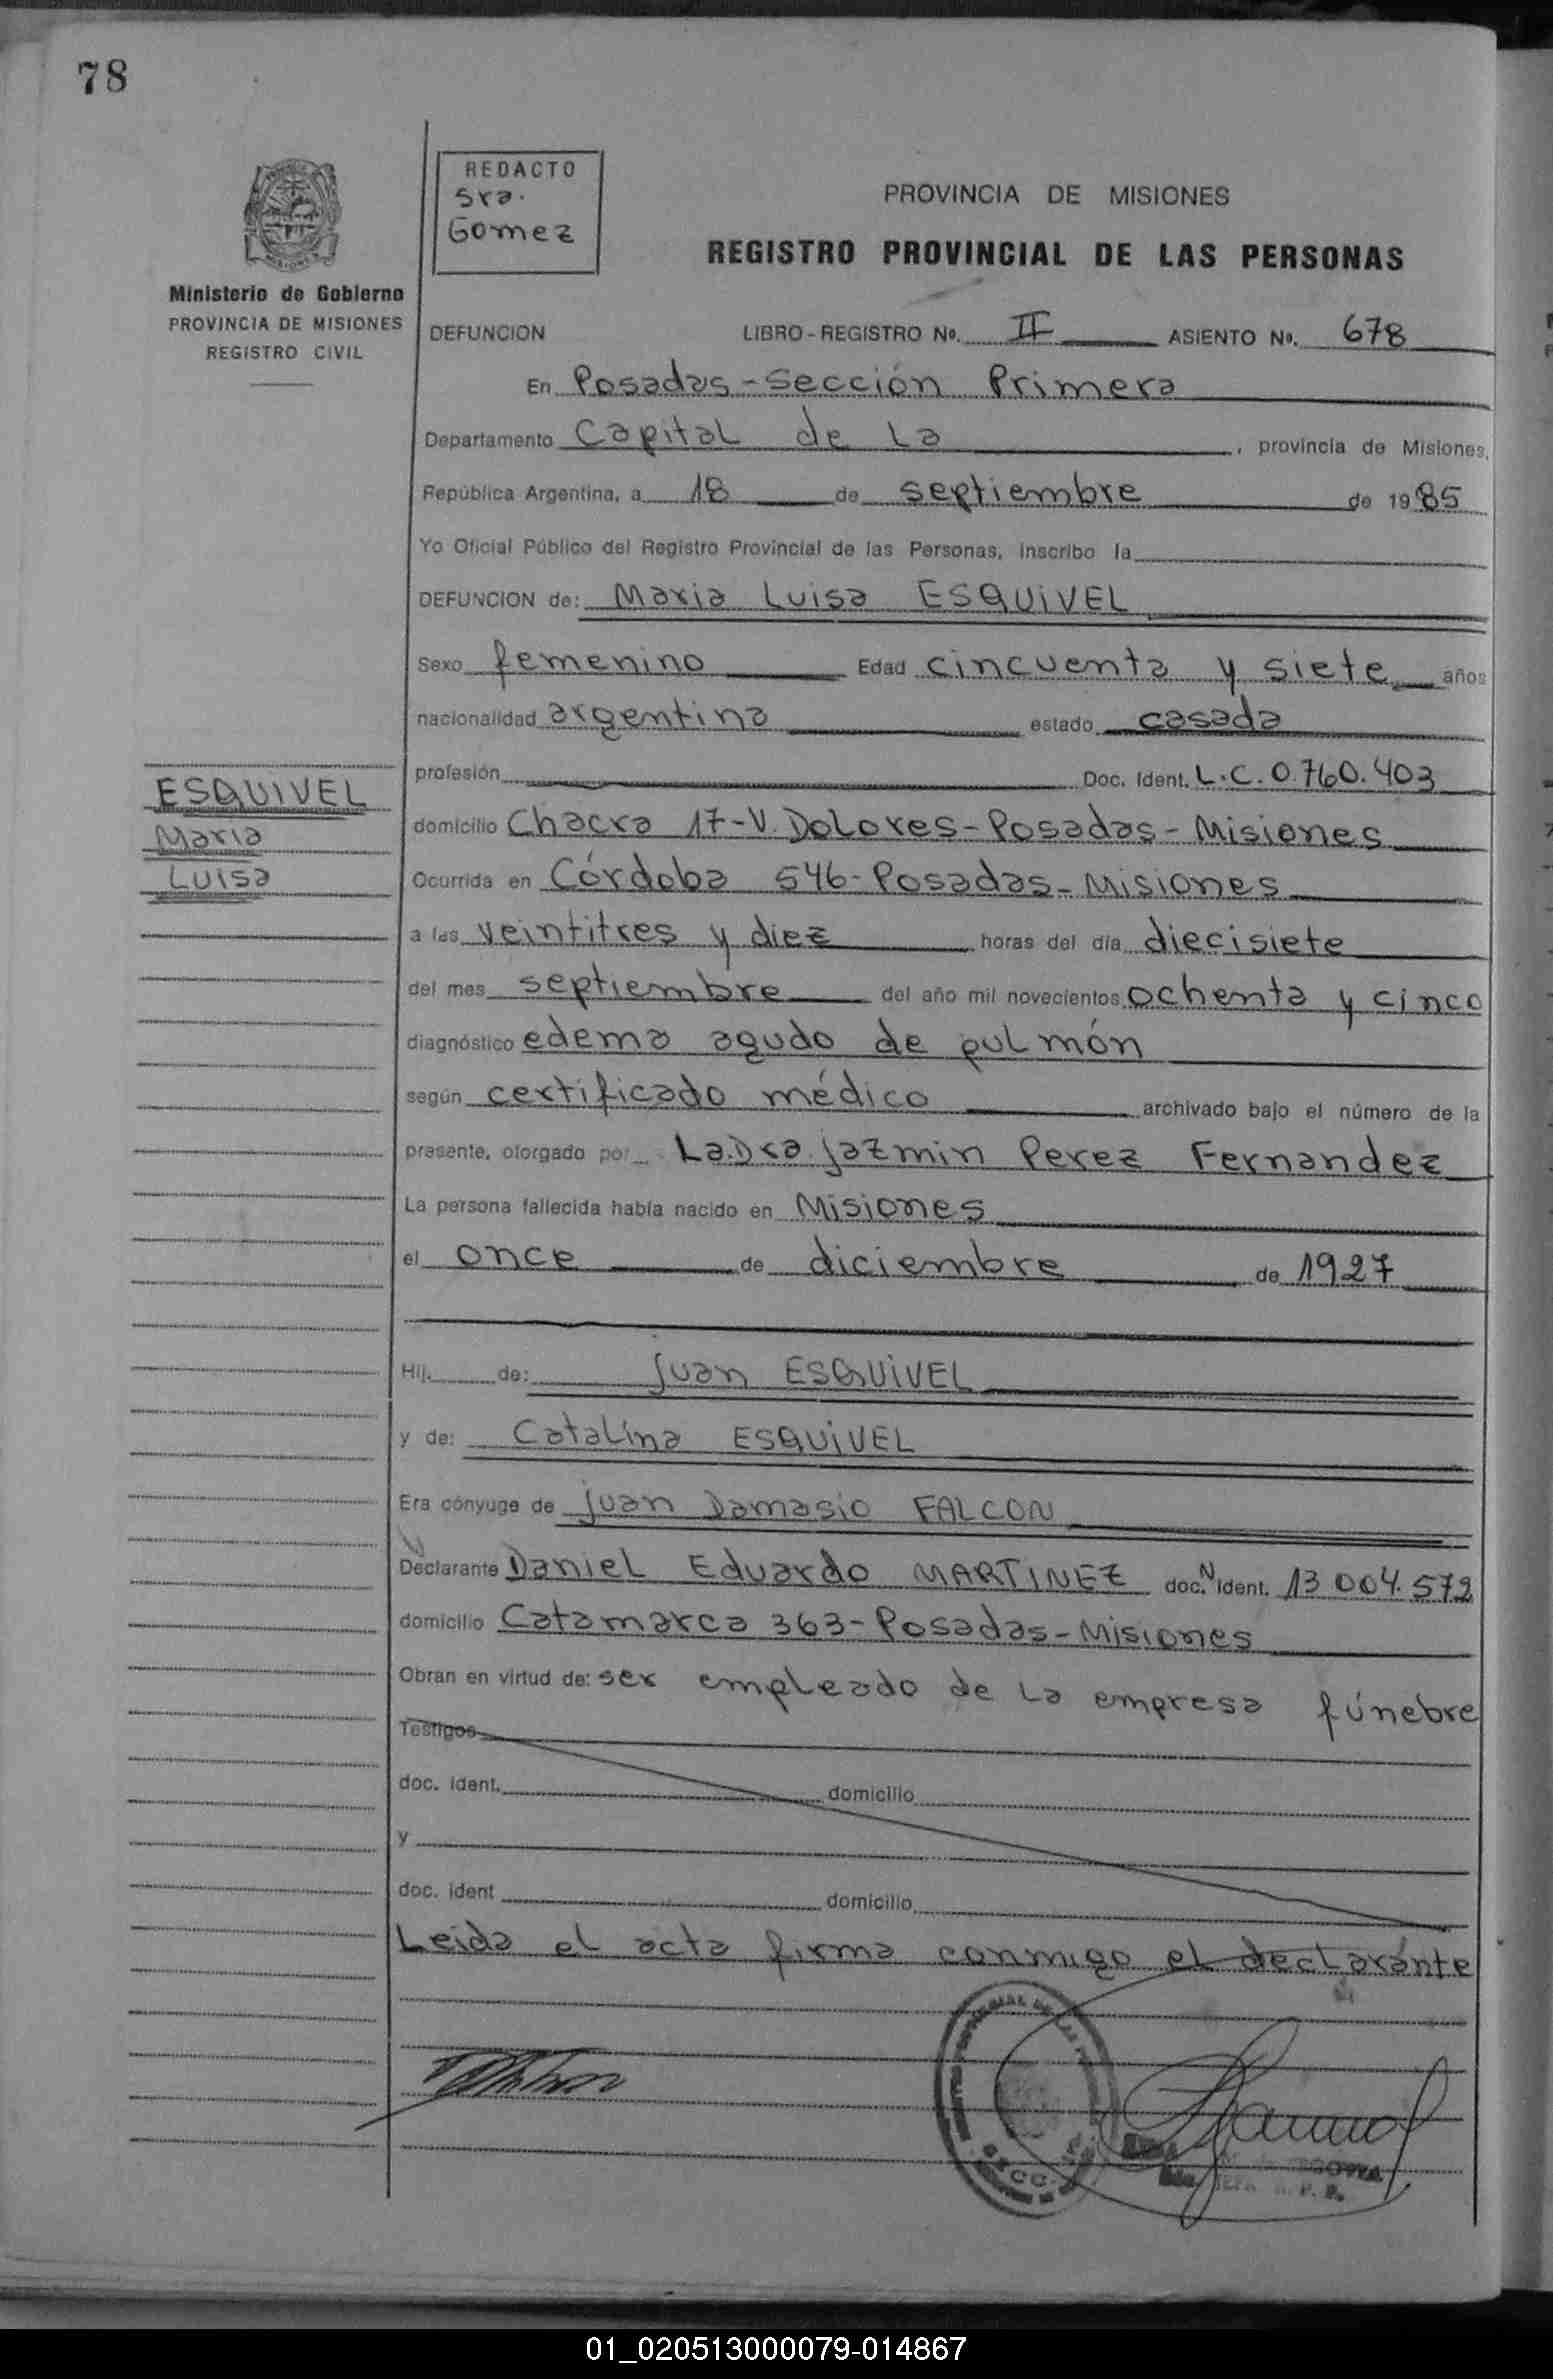 78
REDACTO
Sra.
Gomez
PROVINCIA DE MISIONES
REGISTRO PROVINCIAL DE LAS PERSONAS
Ministerio de Gobierno
PROVINCIA DE MISIONES
REGISTRO CIVIL
DEFUNCION LIBRO-REGISTRO No. II ASIENTO No. 678
En Posadas-Sección Primera
Departamento Capital de La, provincia de Misiones,
República Argentina, a 18 de septiembre de 1985
Yo Oficial Público del Registro Provincial de las Personas, inscribo la
DEFUNCION de: Maria Luisa ESQUIVEL
Sexo femenino Edad cincuenta y siete años
nacionalidad argentina estado casada
profesión Doc. Ident. L.C. 0.760.403
ESQUIVEL
Maria
Luisa
domicilio Chacra 17-V. Dolores-Posadas-Misiones
Ocurrida en Córdoba 546-Posadas-Misiones
a las veintitres y diez horas del día diecisiete
del mes septiembre del año mil novecientos ochenta y cinco
diagnóstico edema agudo de pulmón
según certificado médico archivado bajo el número de la
presente, otorgado por La.Dra.Jazmin Perez Fernandez
La persona fallecida había nacido en Misiones
el once de diciembre de 1927
Hij. de: Juan ESQUIVEL
y de: Catalina ESQUIVEL
Era cónyuge de Juan Damasio FALCON
Declarante Daniel Eduardo MARTINEZ doc. N ident. 13 004.572
domicilio Catamarca 363-Posadas-Misiones
Obran en virtud de: ser empleado de la empresa fúnebre
Testigos
doc. ident. domicilio
y
doc. ident domicilio
Leida el acta firma conmigo el declarante
01_020513000079-014867